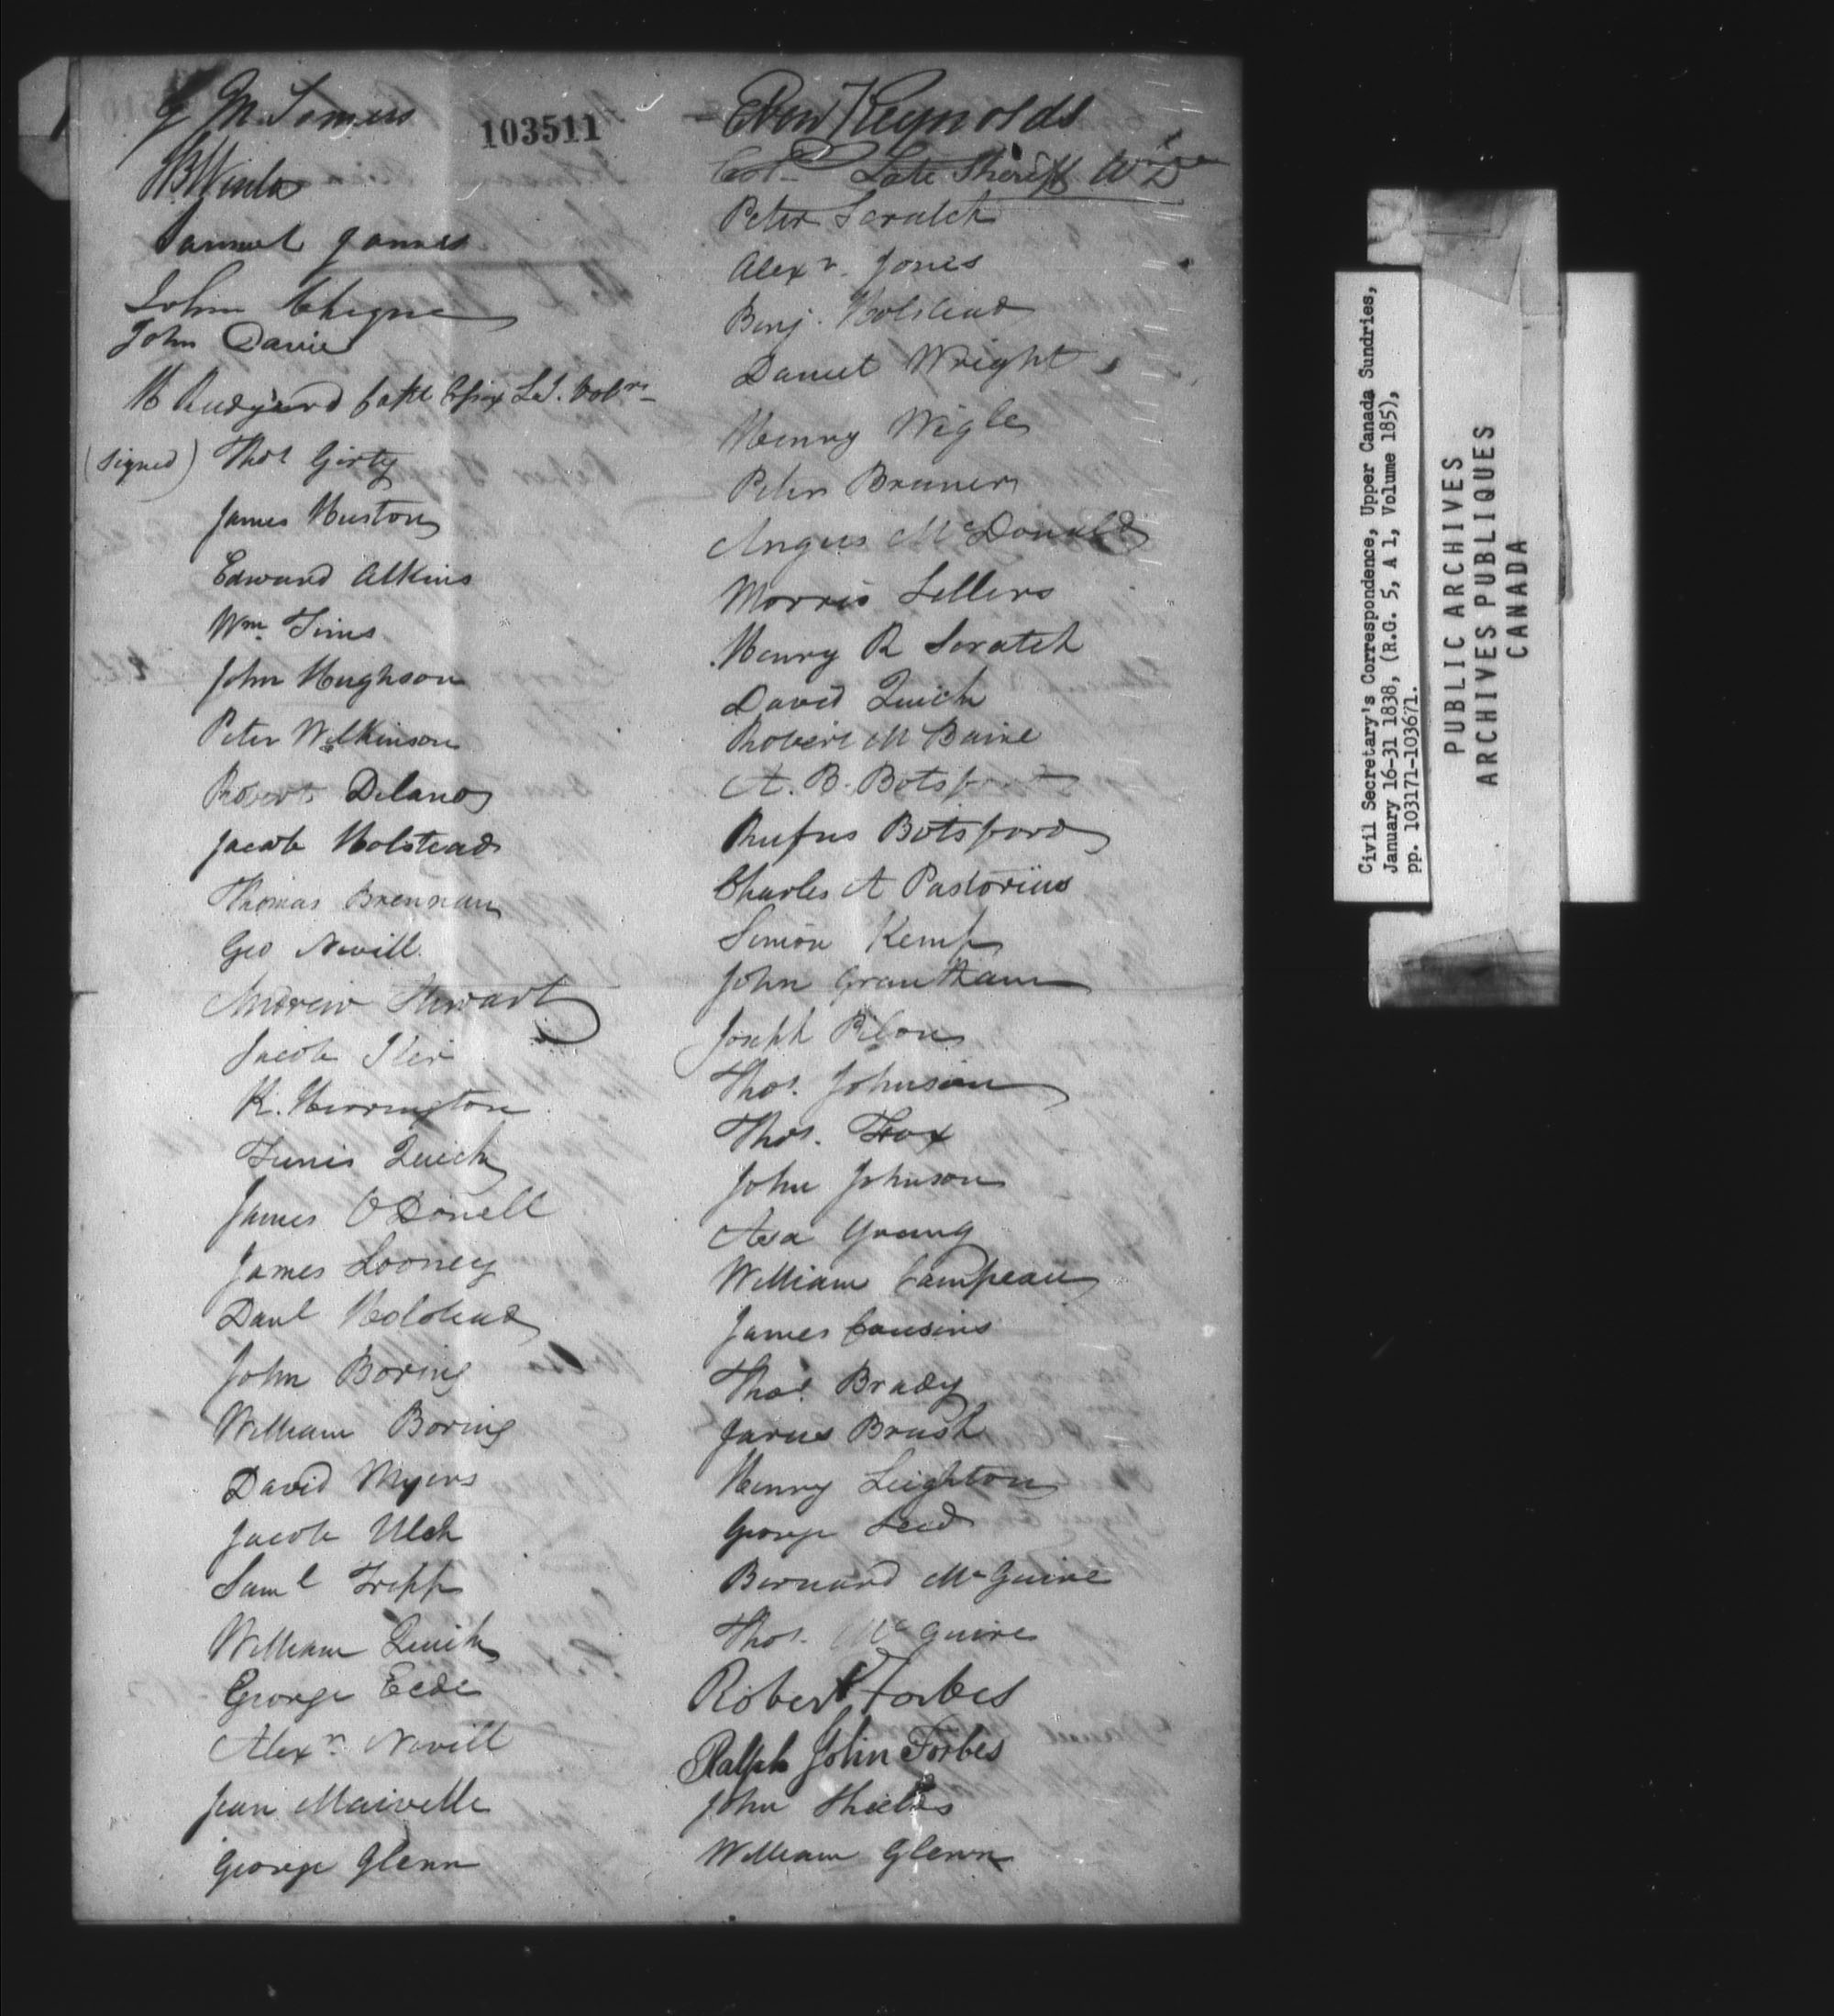 103511
Samuel James
John Davie
(signed) Thos Girty
James Huston
Edward Atkins
Wm Tims
John Hughson
Peter Wilkinson
Robert Delano
Jacob Holstead
Thomas Brennan
Geo Nevill
Andrew Stewart
Jacob Iler
K. Herrington
Tunis Quick
James O Donell
James Looney
Danl Holstead
John Boring
William Boring
David Myers
Jacob Ulch
Saml Tripp
William Quick
George Eede
Alexr Nevill
Jean Maivelle
George Glenn
Eben Reynolds
Col. Late Sheriff W D
Peter Scratch
Alexr. Jones
Benj. Holstead
Daniel Wright
Henry Wigle
Peter Bruner
Angus McDonald
Morris Sellers
Henry R Scratch
David Quick
Robert M Baine
A. B. Botsford
Rufus Botsford
Charles A Pastorius
Simon Kemp
John Grantham
Joseph Pilon
Thos. Johnson
Thos. Fox
John Johnson
Asa Young
William Campeau
James Cousins
Thos. Brady
Jarus Brush
Henry Leighton
George
Bernard McGuire
Thos. McGuire
Robert Forbes
Ralph John Forbes
John Shields
William Glenn
Civil Secretary's Correspondence, Upper Canada Sundries,
January 16-31 1838, (R.G. 5, A 1, Volume 185),
pp. 103171-103671.
PUBLIC ARCHIVES
ARCHIVES PUBLIQUES
CANADA